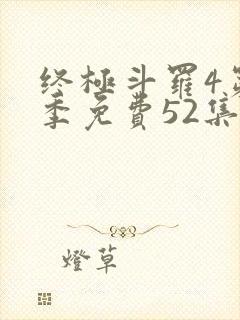 终極斗羅4第
季免費52集
燈草